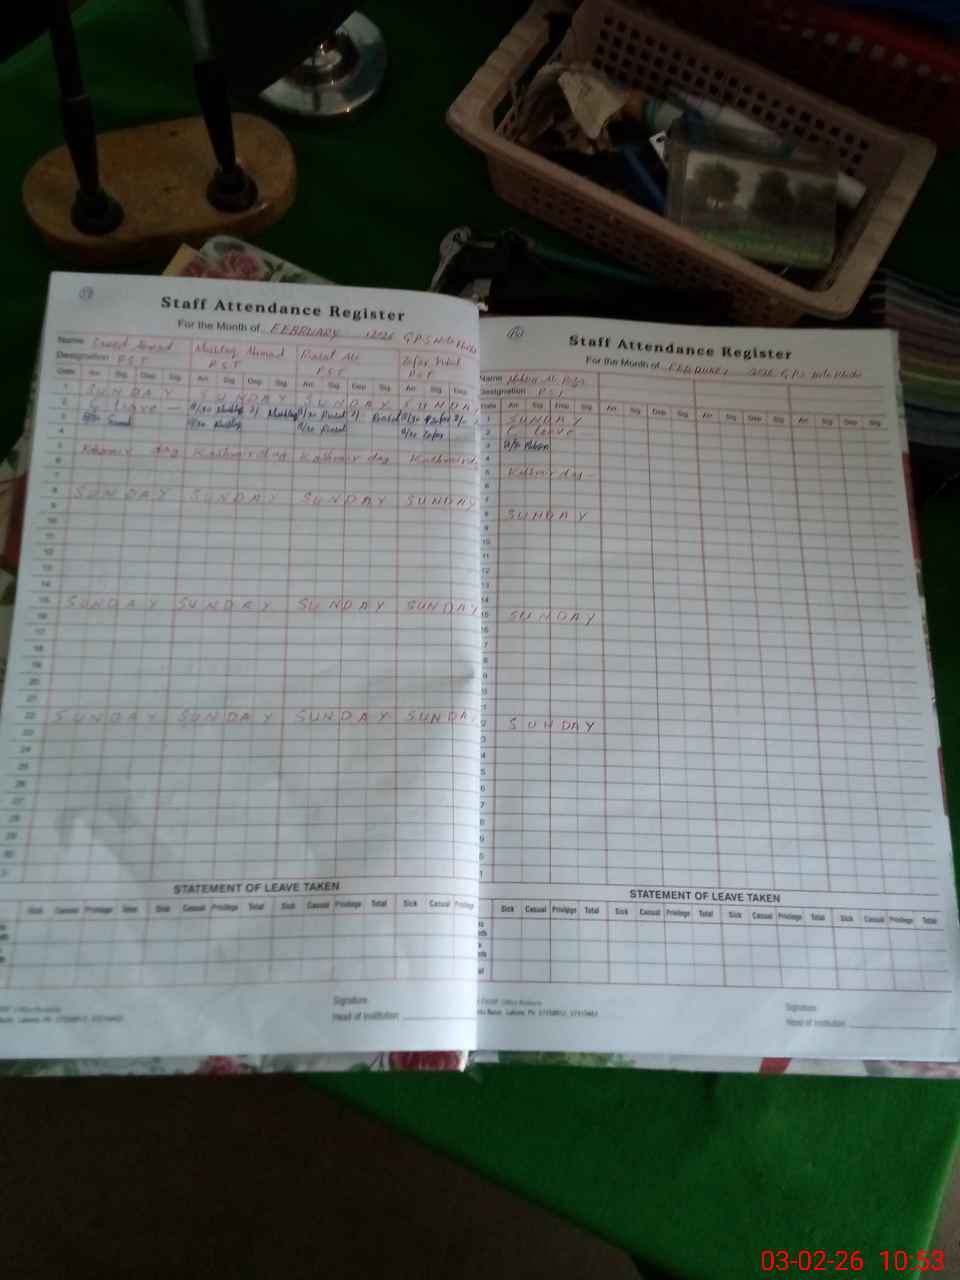 Staff Attendance Register
For the Month of FEBRUARY 2026 G.P.S
Name Saeed Ahmad Mushtaq Ahmad Ali Zafar Iqbal
Designation P.S.T P.S.T P.S.T P.S.T
Date Arr. Sig. Dep Sig. Arr. Sig Dep Sig Arr. Sig Dep Sig Arr. Sig Dep.
1 SUNDAY SUNDAY SUNDAY SUNDAY
2 leave — 8/30 Mushtaq 2/ Mushtaq 8/30 2/ 8/30 Zafar 2/
3 8/30 Saeed 8/30 Mushtaq 8/30 8/30 Zafar
4
5 Kashmir day Kashmir day Kashmir day Kashmir
6
7
8 SUNDAY SUNDAY SUNDAY SUNDAY
9
10
11
12
13
14
15 SUNDAY SUNDAY SUNDAY SUNDAY
16
17
18
19
20
21
22 SUNDAY SUNDAY SUNDAY SUNDA
23
24
25
26
27
28
29
30
STATEMENT OF LEAVE TAKEN
Sick Casual Privilege Total Sick Casual Privilege Total Sick Casual Privilege Total Sick Casual Privilege
Signature
Head of Institution
Staff Attendance Register
For the Month of FEBRUARY 2026 G.P.S
Name Mohsin Ali Raza
Designation P.S.T
Date Arr Sig Dep Sig Arr Sig Dep Sig Arr Sig Dep Sig Arr Sig Dep Sig
1 SUNDAY
2 C leave
3 8/30 Mohsin
4
5 Kashmir day
6
7
8 SUNDAY
9
10
11
12
13
14
15 SUNDAY
16
7
8
9
0
1
2 SUNDAY
3
4
5
6
7
8
9
0
1
STATEMENT OF LEAVE TAKEN
Sick Casual Privilege Total Sick Casual Privilege Total Sick Casual Privilege Total Sick Casual Privilege Total
Signature
Head of Institution
03-02-26 10:53